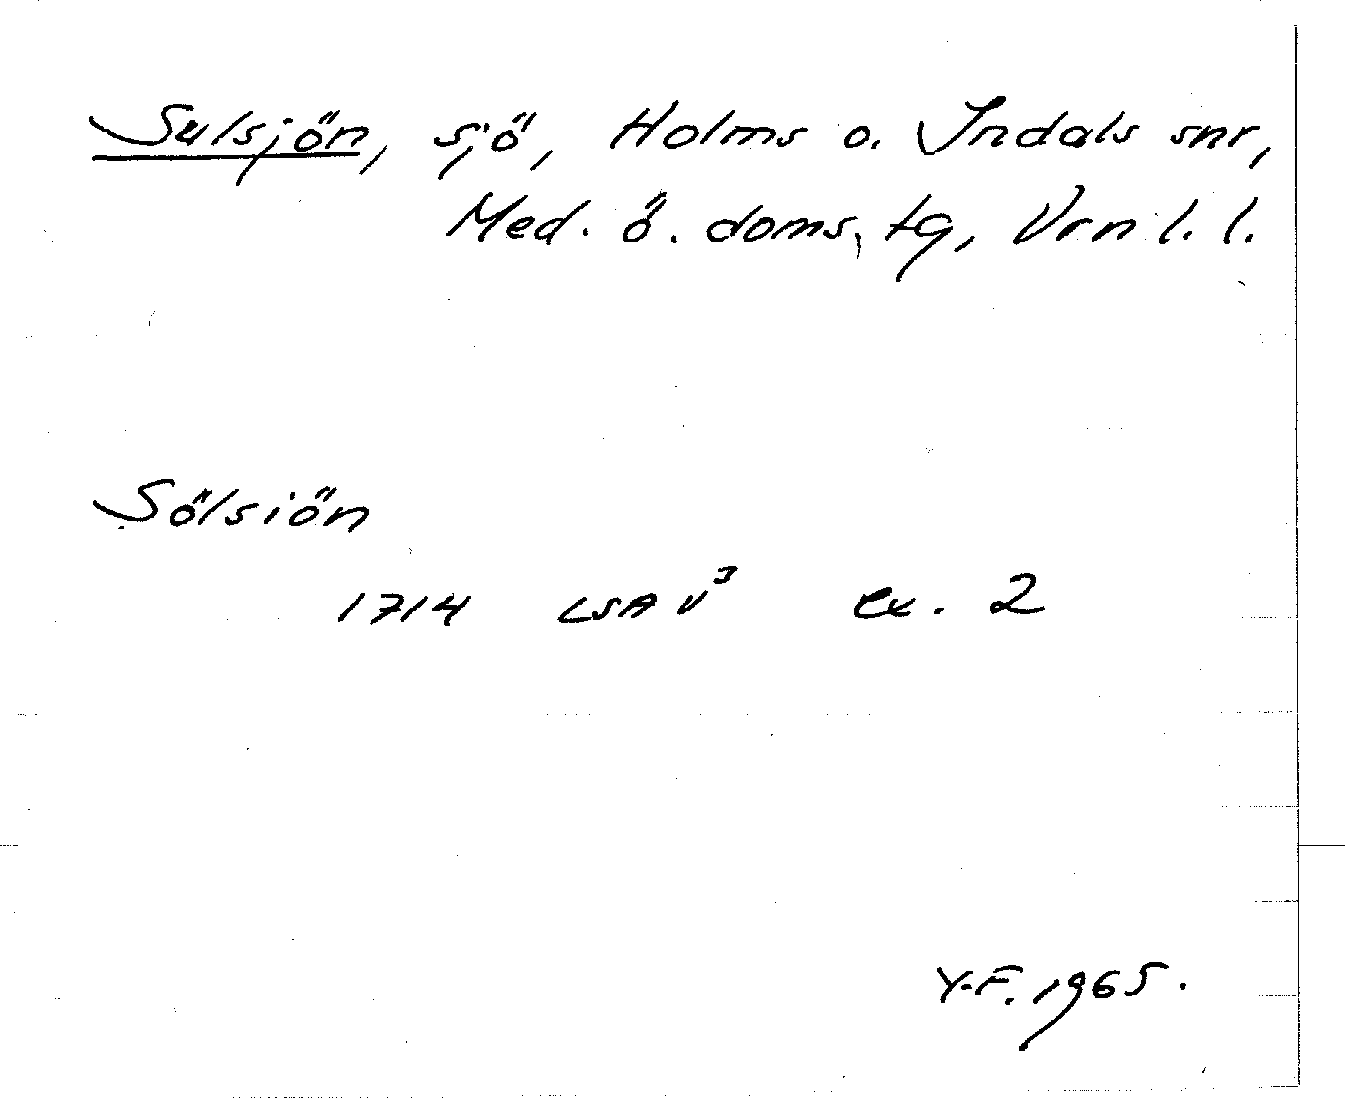 Sulsjön, sjö, Holms o. Indals snr,
Med. ö. doms. tg, Vrnl. l.
Sölsiön
1714 LSA V³ ex. 2
Y-F. 1965.